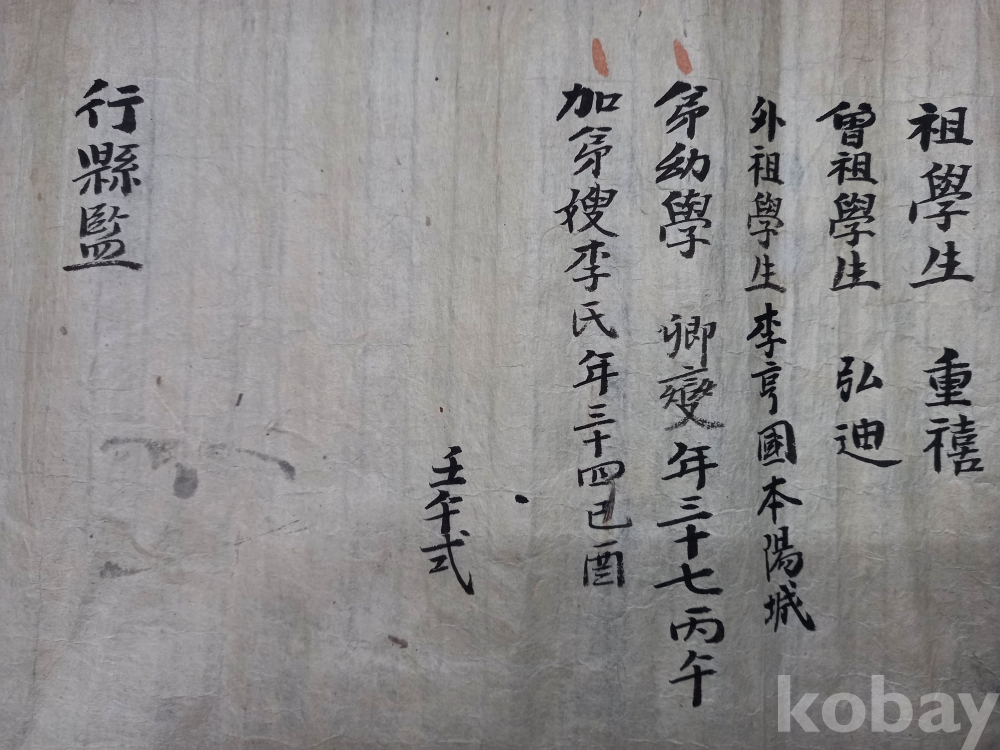 祖學生 重禧
曾祖學生 弘迪
外祖學生李亨國本陽城
弟幼學 卿變年三十七丙午
加弟嫂李氏年三十四己酉
壬午式
行縣監
kobay